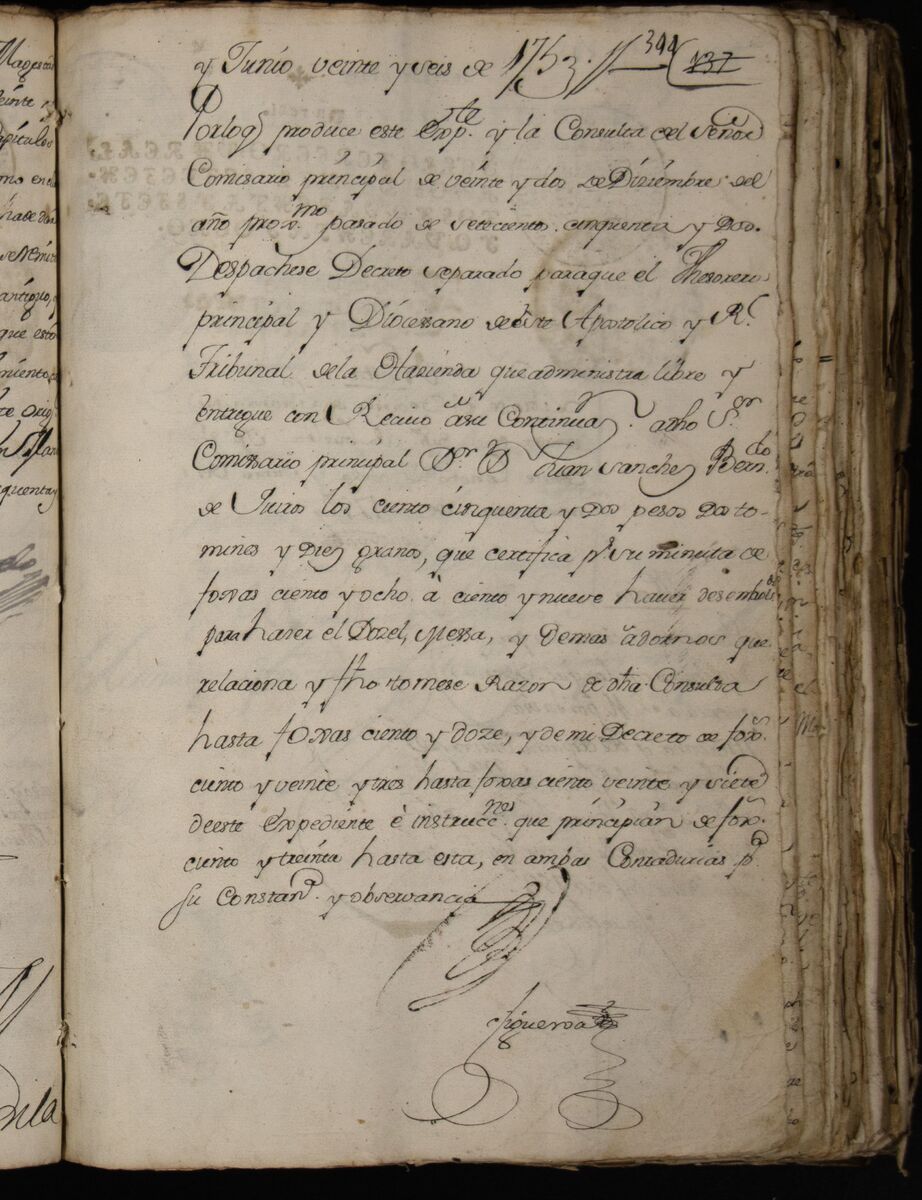 y Junio veinte y seis de 1753. // 394 137
Porloq produce este Exp.te y la Consulta del Señor
Comisario principal de veinte y dos de Diziembre del
año prox.mo pasado de setecient.s cinquenta y Dos.
Despachese Decreto separado paraque el Thesorero
principal y Diocessano de este Apostolico y R.l
Tribunal dela Hazienda que administra libre y
entregue con Recivo à su Continuaz.n adho S.or
Comissario principal D.or D Juan Sanchez Bern.do
de Quiros los ciento cinquenta y dos pesos dos to-
mines y Diez granos, que certifica p.r su minuta de
foxas ciento y ocho à ciento y nueve haver desembols.do
para hazer el Dozel, Messa, y demas adornos que
relaciona y fho tomese Razon de dha Consulta
hasta foxas ciento y doze, y de mi Decreto de fox.s
ciento y veinte y tres hasta foxas ciento veinte y siete
deeste Expediente è instrucc.nes que principian de fox.s
ciento y treinta hasta esta, en ambas Contadurias p.a
su Constan.a y observancia
Figueroa
Magestad
veinte y
capitulos
antiguo,
que esto
te orig
quenta y